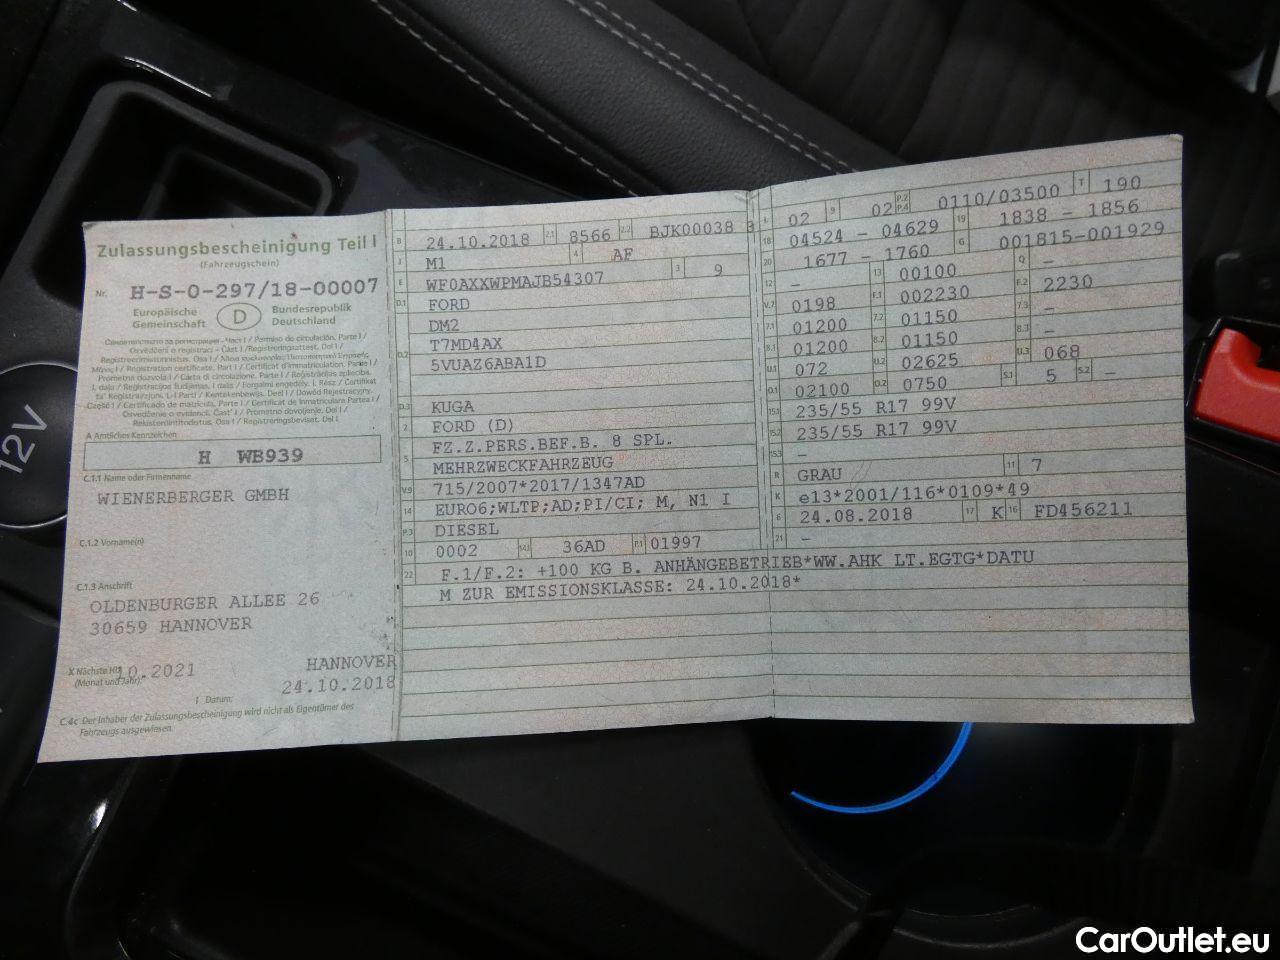 Zulassungsbescheinigung Teil I
(Fahrzeugschein)
Nr. H-S-0-297/18-00007
Europäische Gemeinschaft
D
Bundesrepublik Deutschland
A Amtliches Kennzeichen
H WB939
C.1.1 Name oder Firmenname
WIENERBERGER GMBH
C.1.2 Vorname(n)
-
C.1.3 Anschrift
OLDENBURGER ALLEE 26
30659 HANNOVER
X Nächste HU
(Monat und Jahr):
10.2021
HANNOVER
24.10.2018
I Datum:
C.4c Der Inhaber der Zulassungsbescheinigung wird nicht als Eigentümer des
Fahrzeugs ausgewiesen.
B 24.10.2018 2.1 8566 2.2 BJK00038
J M1 4 AF
E WF0AXXWPMAJB54307 3 9
D.1 FORD
DM2
D.2 T7MD4AX
5VUAZ6ABA1D
D.3 KUGA
2 FORD (D)
5 FZ.Z.PERS.BEF.B. 8 SPL.
MEHRZWECKFAHRZEUG
V.9 715/2007*2017/1347AD
14 EURO6;WLTP;AD;PI/CI; M, N1 I
P.3 DIESEL
10 0002 14.1 36AD P.1 01997
22 F.1/F.2: +100 KG B. ANHÄNGEBETRIEB*WW.AHK LT.EGTG*DATU
M ZUR EMISSIONSKLASSE: 24.10.2018*
L 02 9 02 P.2 P.4 0110/03500 T 190
18 04524 - 04629 19 1838 - 1856
20 1677 - 1760 G 001815-001929
12 - 13 00100 Q -
V.7 0198 F.1 002230 F.2 2230
7.1 01200 7.2 01150 7.3 -
8.1 01200 8.2 01150 8.3 -
U.1 072 U.2 02625 U.3 068
O.1 02100 O.2 0750 S.1 5 S.2 -
15.1 235/55 R17 99V
15.2 235/55 R17 99V
15.3 -
R GRAU 11 7
K e13*2001/116*0109*49
6 24.08.2018 17 K 16 FD456211
21 -
12V
CarOutlet.eu